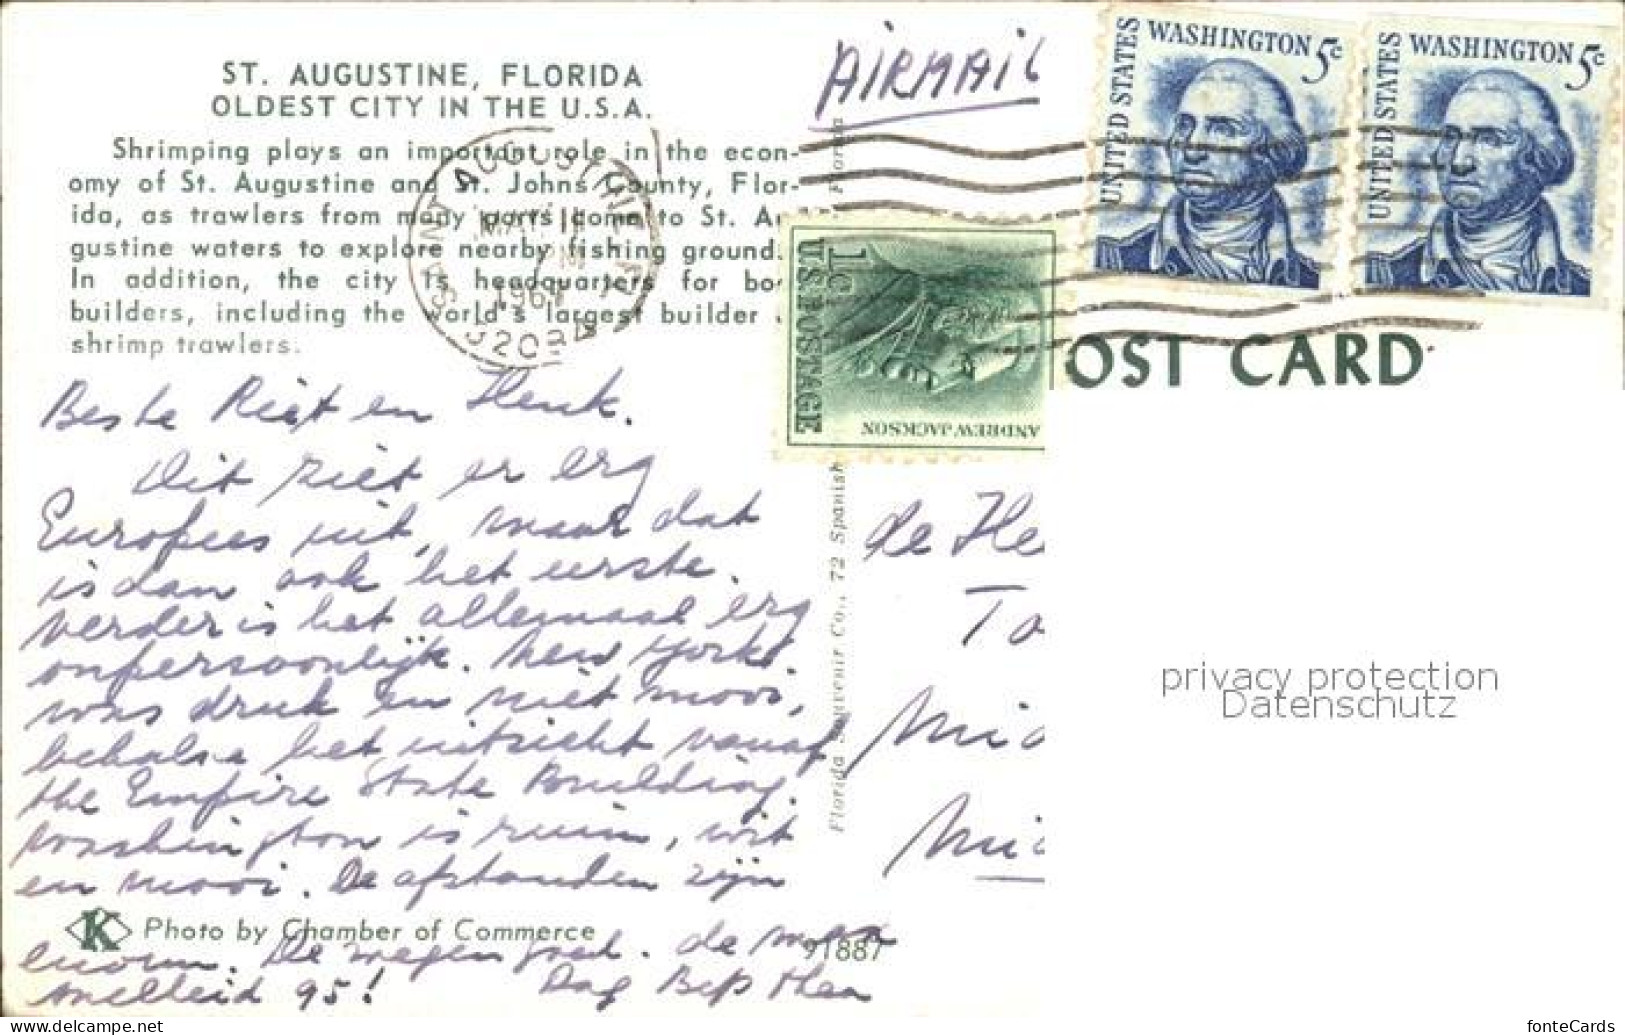 ST. AUGUSTINE, FLORIDA
OLDEST CITY IN THE U.S.A.
Shrimping plays an important role in the econ-
omy of St. Augustine and St. Johns County, Flor-
ida, as trawlers from many ports come to St. Au
gustine waters to explore nearby fishing ground.
In addition, the city is headquarters for bo
builders, including the world's largest builder
shrimp trawlers.
Beste Riet en Henk.
Dit ziet er erg
Europees uit, maar dat
is dan ook het eerste.
Verder is het allemaal erg
onpersoonlijk. New York
was druk en niet mooi,
behalve het uitzicht vanaf
the Empire State Building.
Washington is ruim, wit
en mooi. De afstanden zijn
enorm. De wegen goed. de max
snelheid 95!
Dag Bep Theo
K Photo by Chamber of Commerce
91887
Florida Souvenir Co., 72 Spanish
Florida
AIRMAIL
SAINT AUGUSTINE
MAY
PM
196
32084
UNITED STATES
WASHINGTON 5c
UNITED STATES
WASHINGTON 5c
1c
U.S. POSTAGE
ANDREW JACKSON
OST CARD
de He
To
Mid
Mid
privacy protection
Datenschutz
www.delcampe.net
fonteCards